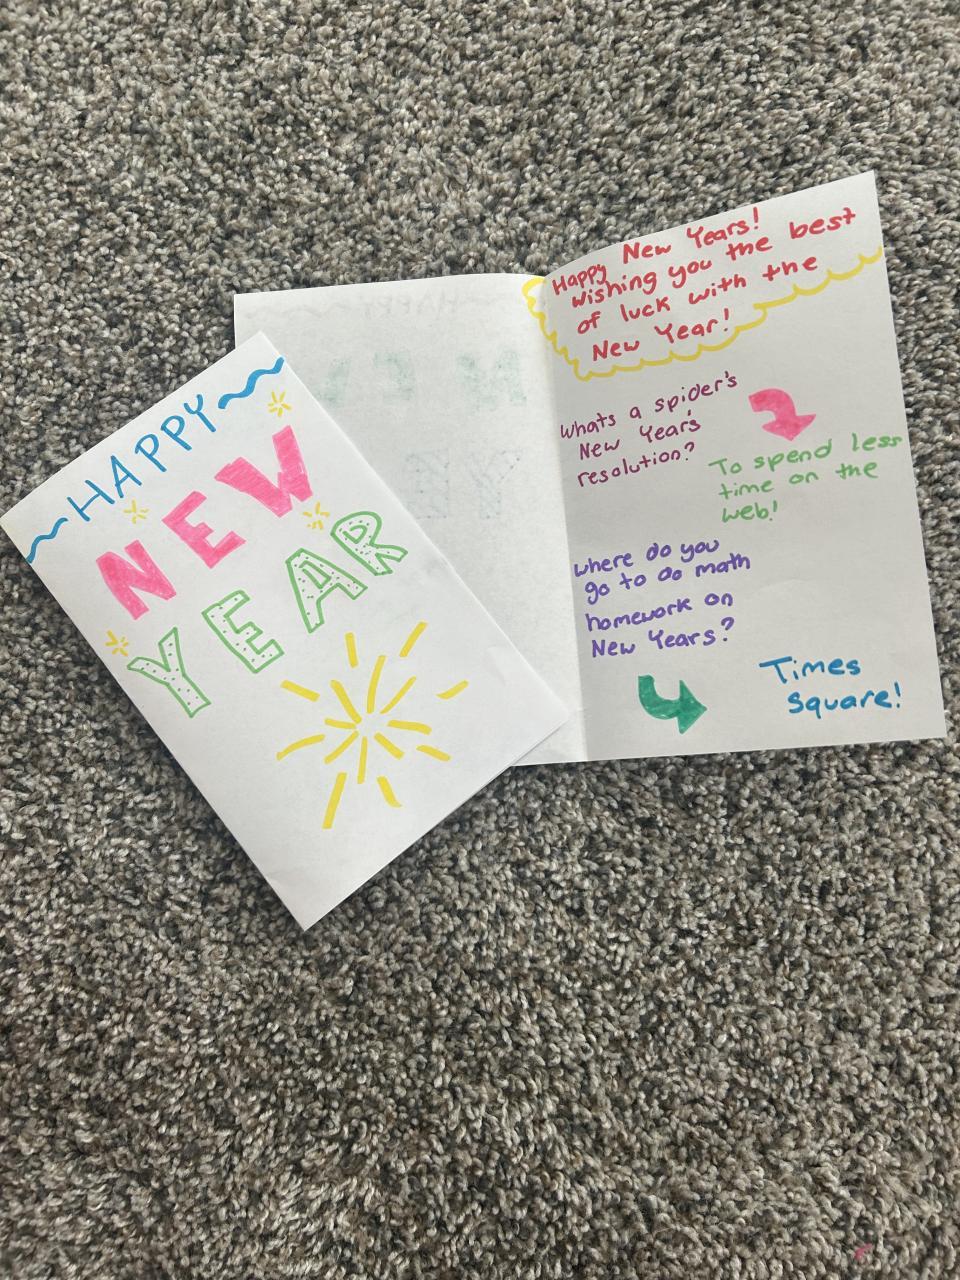 HAPPY
NEW
YEAR
Happy New Years!
wishing you the best
of luck with the
New Year!
Whats a spider's
New Year's
resolution?
To spend less
time on the
web!
where do you
go to do math
homework on
New Years?
Times
Square!